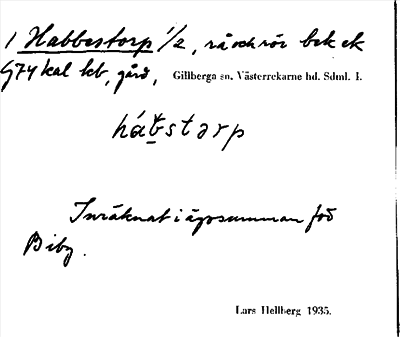 1 Habbestorp 1/2, rå och rör bek ek
G74 kal kb, gård, Gillberga sn. Västerrekarne hd. Sdml. l.
hábstɘrp
Inräknat i ägosumman för
Biby.
Lars Hellberg 1935.